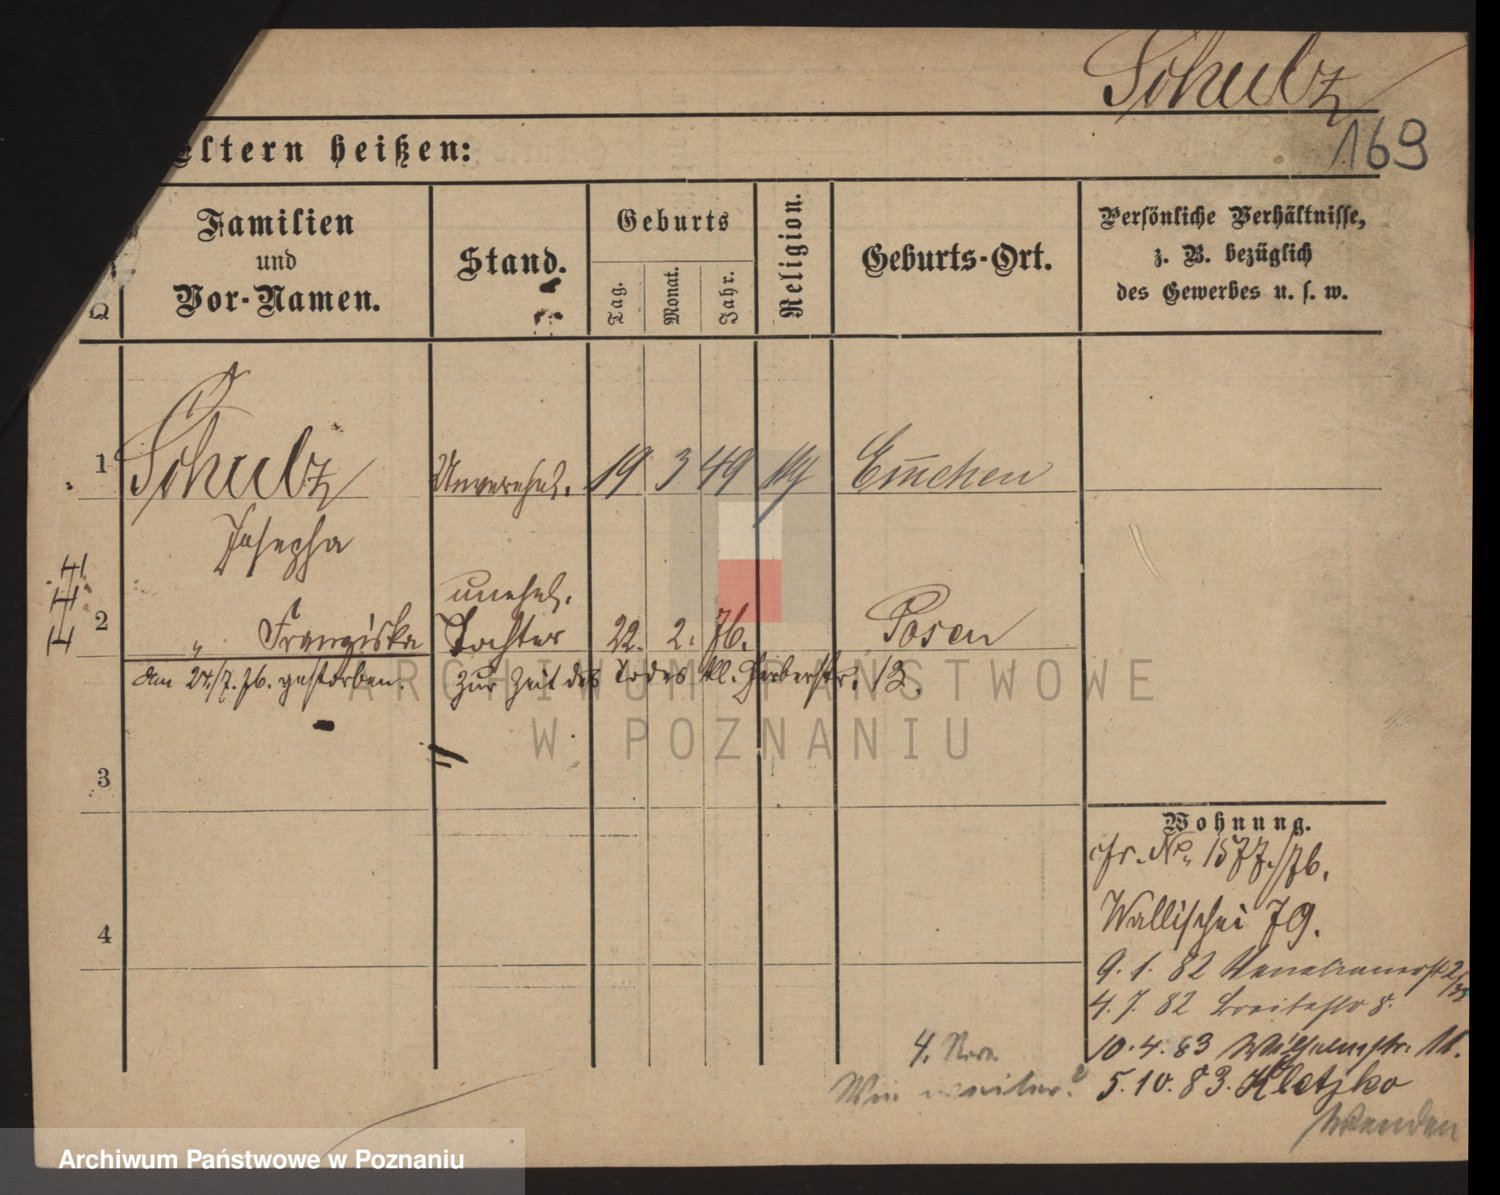 Schulz
169
Eltern heißen:
Familien
und
Vor-Namen.
Stand.
Geburts
Tag.
Monat.
Jahr.
Religion.
Geburts-Ort.
Persönliche Verhältnisse,
z. B. bezüglich
des Gewerbes u. s. w.
1 Schulz Unverehel. 19 3 49 Emchen
Josepha
unehel.
2 " Franziska Tochter 22. 2. 76. Posen
am 24./7. 76. gestorben. zur Zeit des Todes kl. Gerberstr. 13.
3
Wohnung.
cfr. No. 1577./76.
4
Wallischei 79.
9. 1. 82
4. 7. 82 Breitestr 8.
10. 4. 83 Wilhelmstr. 11.
4.
5. 10. 83. Kletzko
Wenden
ARCHIWUM PAŃSTWOWE
W POZNANIU
Archiwum Państwowe w Poznaniu